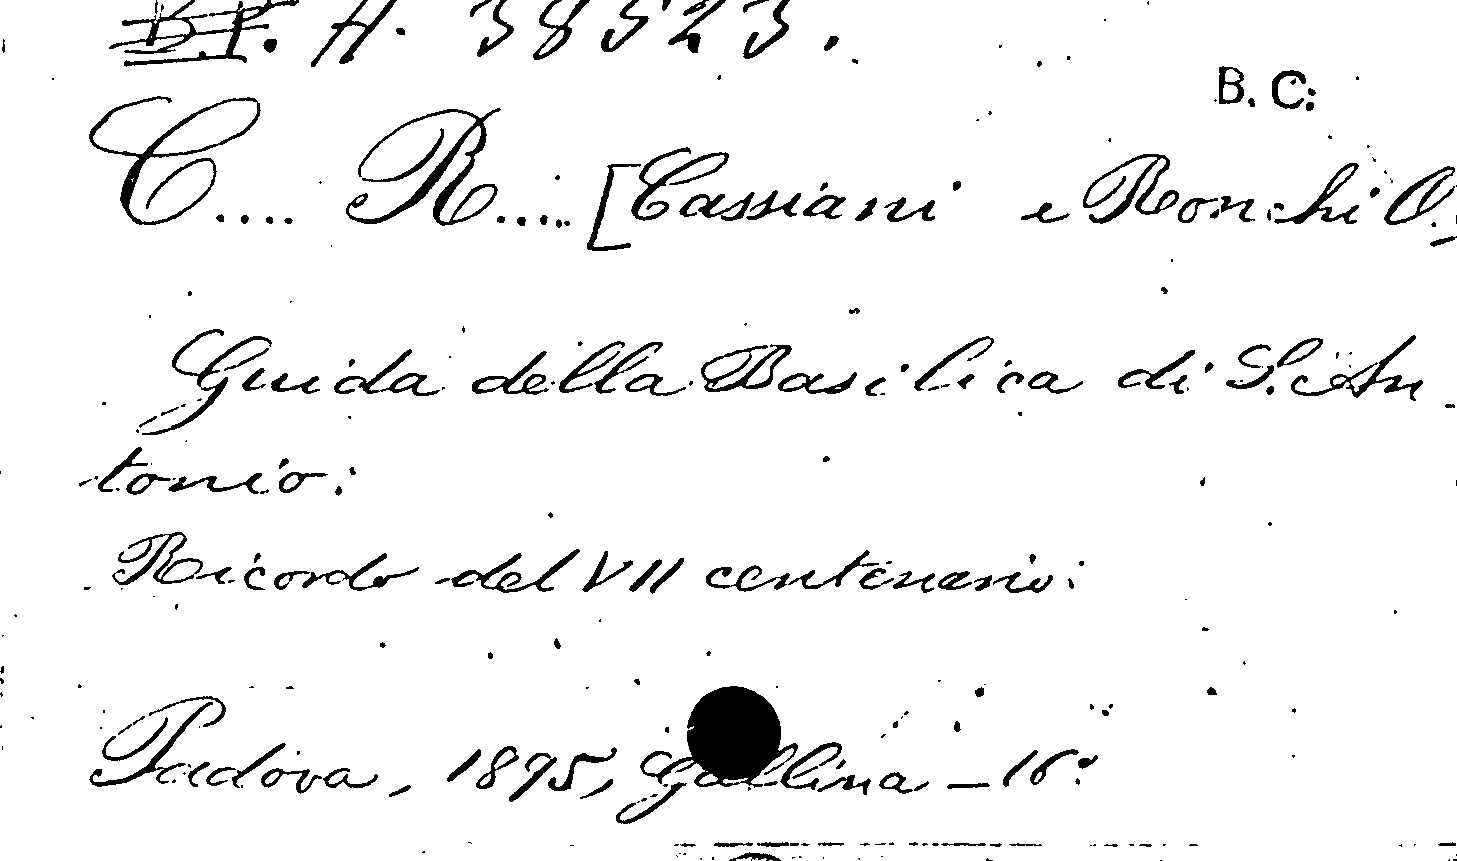 B.P. A. 38523.
B. C:
C.... R..... [Cassiani e Ronchi O.
Guida della Basilica di S. An-
tonio:
Ricordo del VII centenario:
Padova, 1895, Gallina - 16: